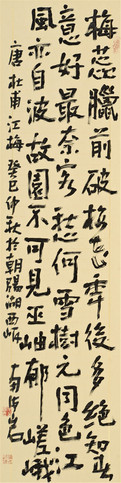 梅蕊臘前破梅花年後多絕知春
意好最奈客愁何雪樹元同色江
風亦自波故園不可見巫岫郁嵯峨
唐杜甫江梅癸巳仲秋於朝陽湖西